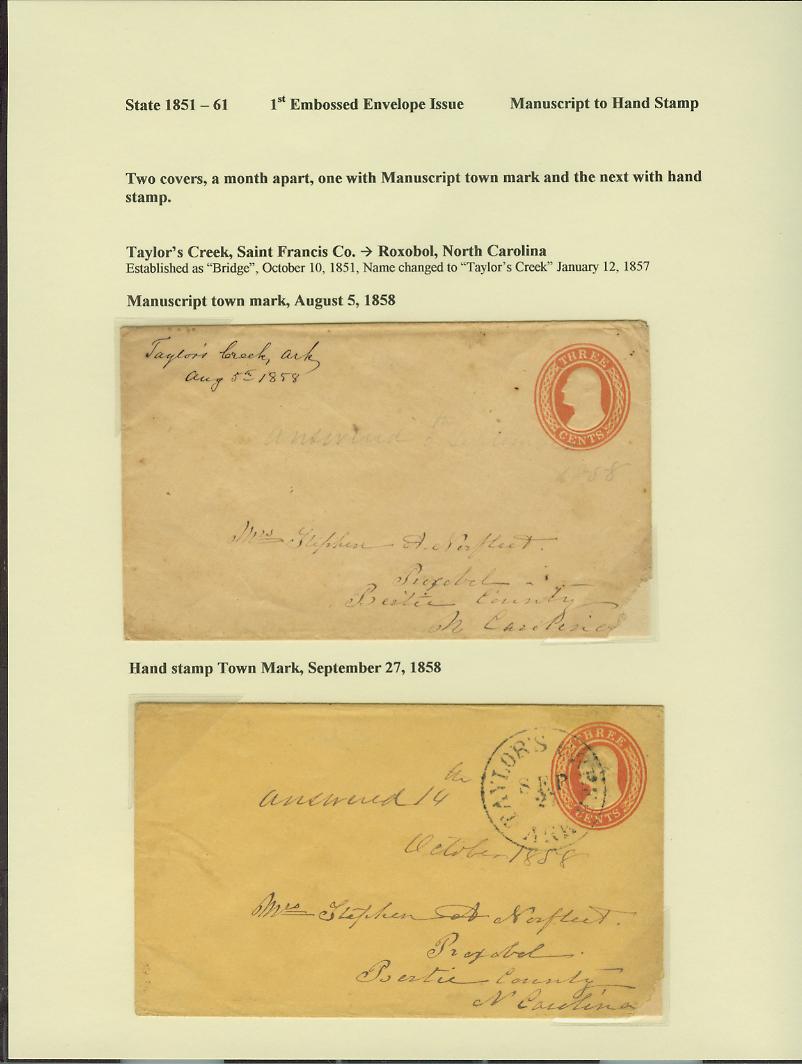 State 1851 – 61 1st Embossed Envelope Issue Manuscript to Hand Stamp
Two covers, a month apart, one with Manuscript town mark and the next with hand
stamp.
Taylor's Creek, Saint Francis Co. → Roxobol, North Carolina
Established as “Bridge”, October 10, 1851, Name changed to “Taylor's Creek” January 12, 1857
Manuscript town mark, August 5, 1858
Taylor's Creek, Ark
Aug 5th 1858
THREE
CENTS
answered
1858
Mrs Stephen A. Norfleet.
Bertie County
N Carolina
Hand stamp Town Mark, September 27, 1858
TAYLOR'S
SEP
ARK
THREE
CENTS
answered 14th
October 1858
Mrs Stephen A Norfleet.
Bertie County
N Carolina